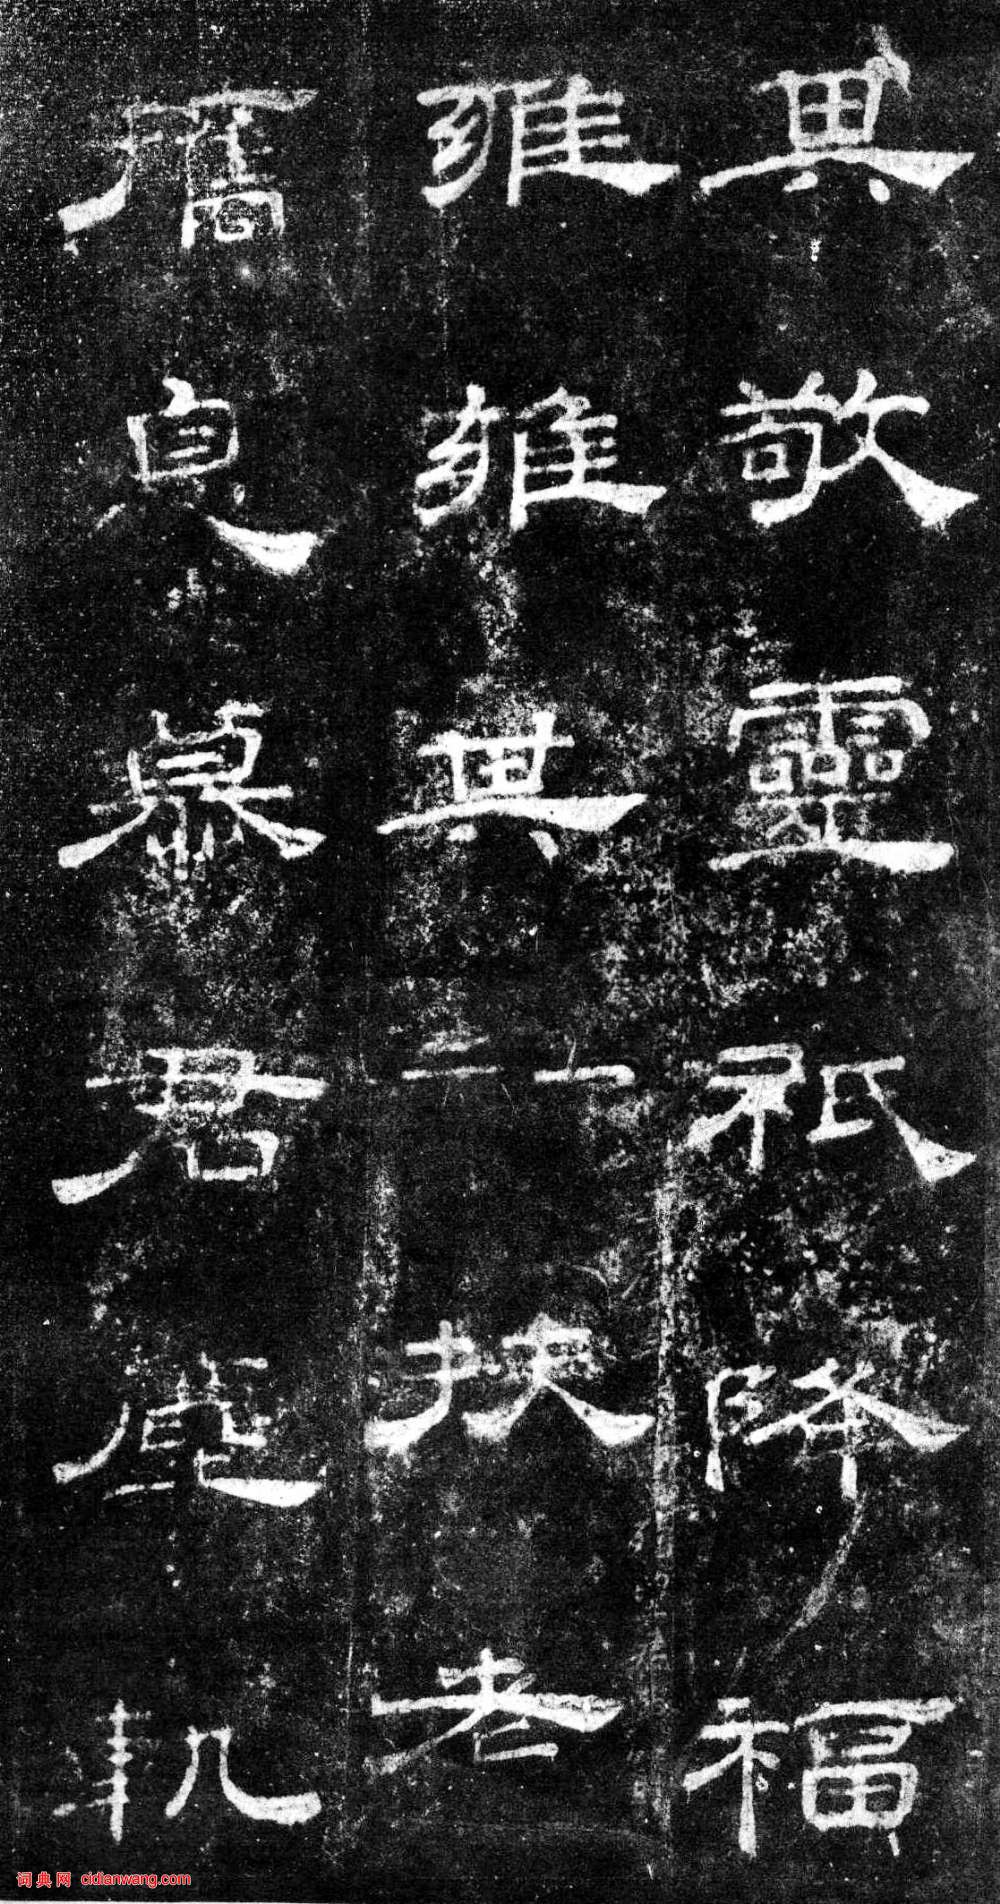 其敬靈祇降福
雍雍其扶老
攜息慕君塵軌
词典网 cidianwang.com